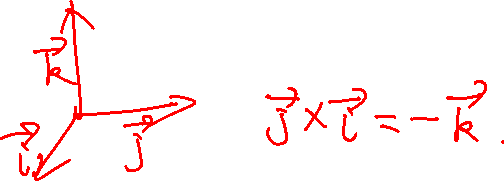 k⃗
i⃗
j⃗
j⃗ × i⃗ = −k⃗.